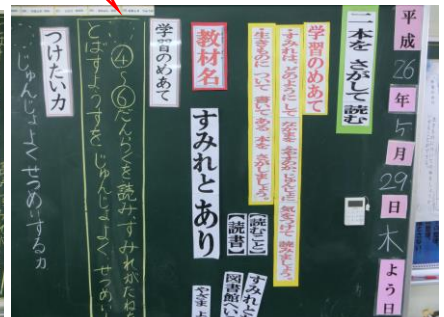 平成26年5月29日木よう日
二本をさがして読む
学習のめあて
すみれは、どのようにしてなかまをふやすのか、じゅんじょに気をつけて読みましょう。
生きものについて書いてある本をさがしましょう。
教材名
すみれとあり
【読むこと】
【読書】
すみれと
図書館へい
やざま よ
学習のめあて
④〜⑥だんらくを読み、すみれがたねを
とばすようすを、じゅんじょよく、せつめい
つけたい力
じゅんじょよくせつめいする力